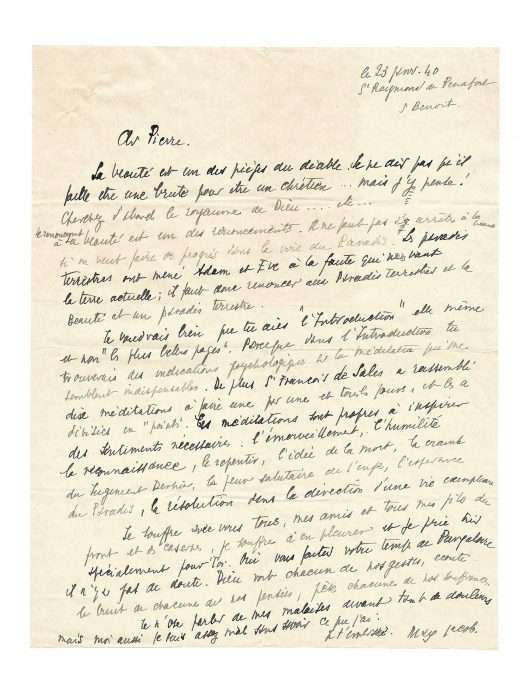 le 23 janv. 40
St Raymond de Penafort
S Benoit
Cher Pierre.
La beauté est un des pièges du diable. Je ne dis pas qu'il
faille être une brute pour être un chrétien ... mais j'y pense!
Cherchez d'abord le royaume de Dieu .... etc ...
le renoncement
à la beauté est un des renoncements. Il ne faut pas s'y arrêter à la
si on veut faire de progrès dans la voie du Paradis. Les paradis
terrestres ont mené Adam et Eve à la faute qui nous vaut
la terre actuelle; il faut donc renoncer aux Paradis terrestres et la
Beauté est un paradis terrestre.
Je voudrais bien que tu aies "l'Introduction" elle même
et non "les plus belles pages". Parce que dans l'Introduction tu
trouverais des indications psychologiques sur la méditation qui me
semblent indispensables. De plus St François de Sales a rassemblé
dix méditations à faire une par une et tous les jours, et les a
divisées en "points". Ces méditations sont propres à inspirer
des sentiments nécessaires: l'émerveillement, l'humilité
la reconnaissance, le repentir, l'idée de la mort, la crainte
du Jugement Dernier, la peur salutaire de l'enfer, l'espérance
du Paradis, la résolution dans la direction d'une vie exemplaire
Je souffre avec vous tous, mes amis et tous mes fils du
front et des casernes, je souffre à en pleurer et je prie Dieu
spécialement pour toi. Oui vous faites votre temps de Purgatoire
il n'y a pas de doute. Dieu voit chacun de nos gestes, écoute
le bruit de chacune de nos pensées, pèse chacune de nos souffrances
Je n'ose parler de mes malaises devant tant de douleurs
mais moi aussi je suis assez mal sans savoir ce que j'ai.
Je t'embrasse. Max Jacob.